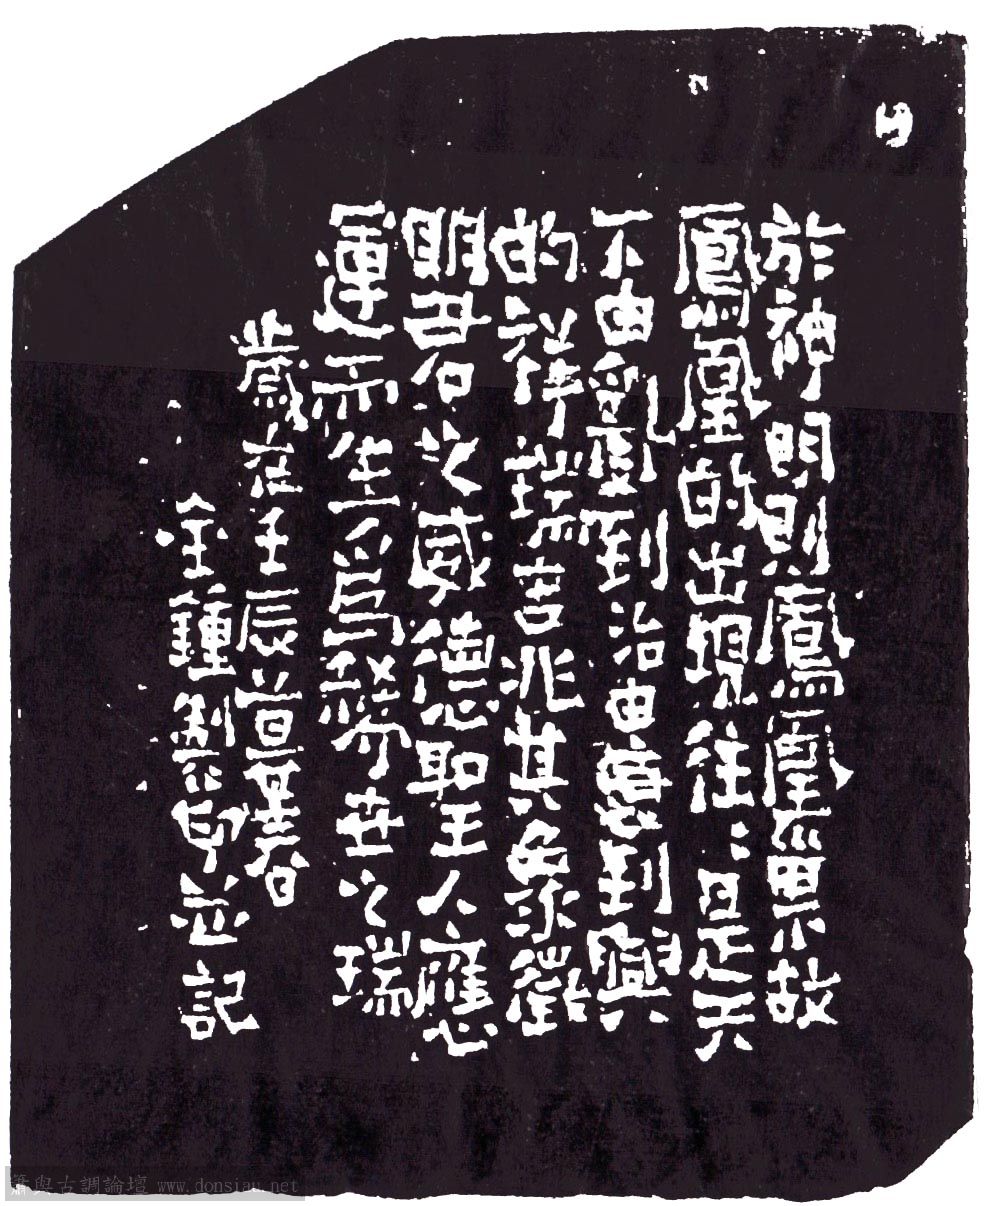 於神明則鳳凰巢故
鳳凰的出現往〻是天
下由亂到治由衰到興
的祥瑞吉兆其象徵
明君之威德聖王人應
運而生為稀世之瑞
歲在壬辰暮春
金鍾製印並記
簫與古調論壇 www.donsiau.net